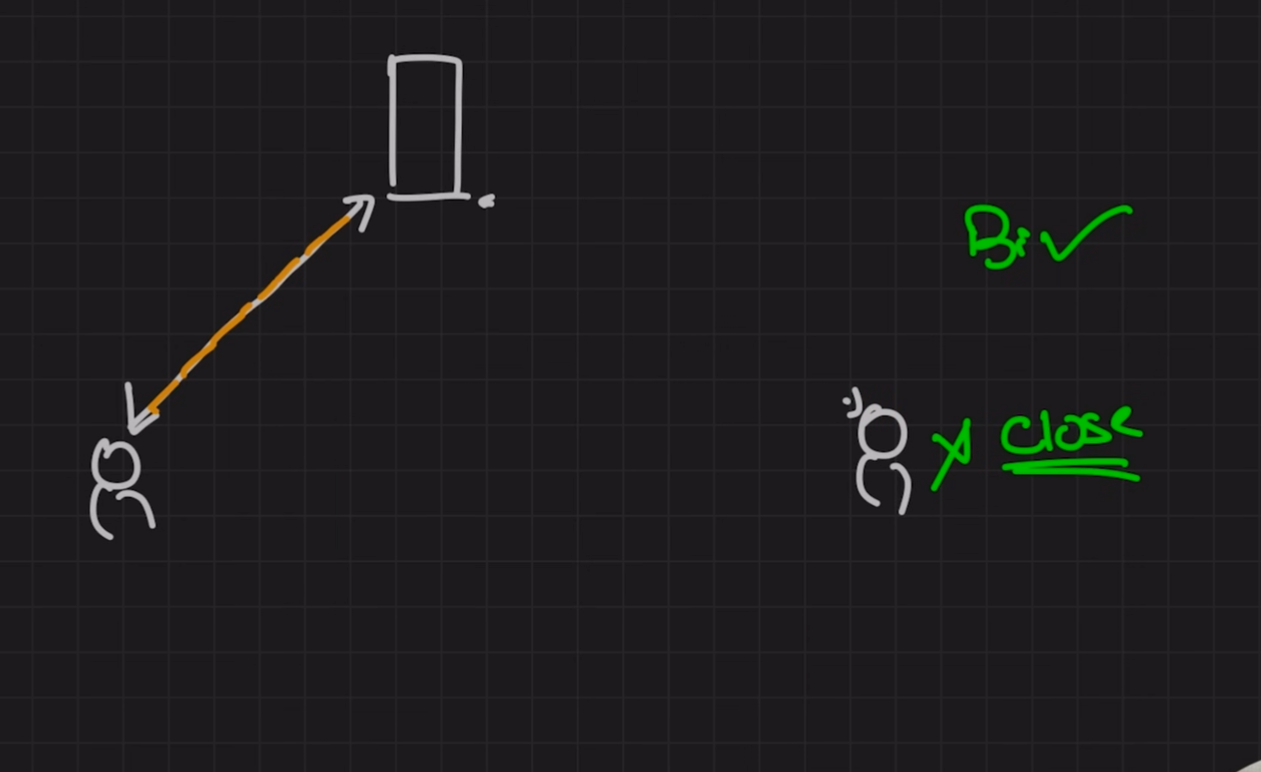 Bi ✓
X Close